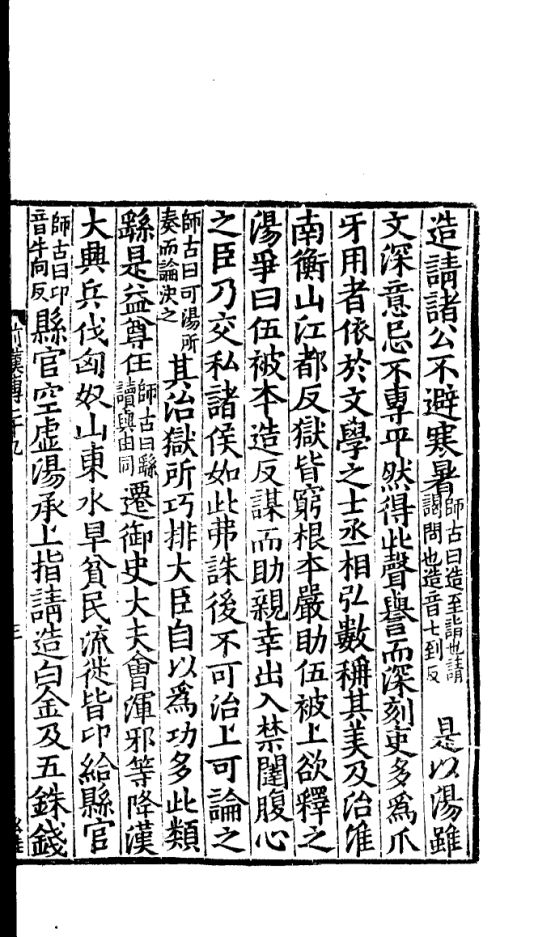 造請諸公不避寒暑師古曰造至詣也請謁問也造音七到反是以湯雖
文深意忌不專平然得此聲譽而深刻吏多為爪
牙用者依於文學之士丞相弘數稱其美及治淮
南衡山江都反獄皆窮根本嚴助伍被上欲釋之
湯爭曰伍被本造反謀而助親幸出入禁闥腹心
之臣乃交私諸侯如此弗誅後不可治上可論之
師古曰可湯所奏而論決之其治獄所巧排大臣自以為功多此類
繇是益尊任師古曰繇讀與由同遷御史大夫會渾邪等降漢
大興兵伐匈奴山東水旱貧民流徙皆卬給縣官
師古曰卬音牛向反縣官空虛湯承上指請造白金及五銖錢